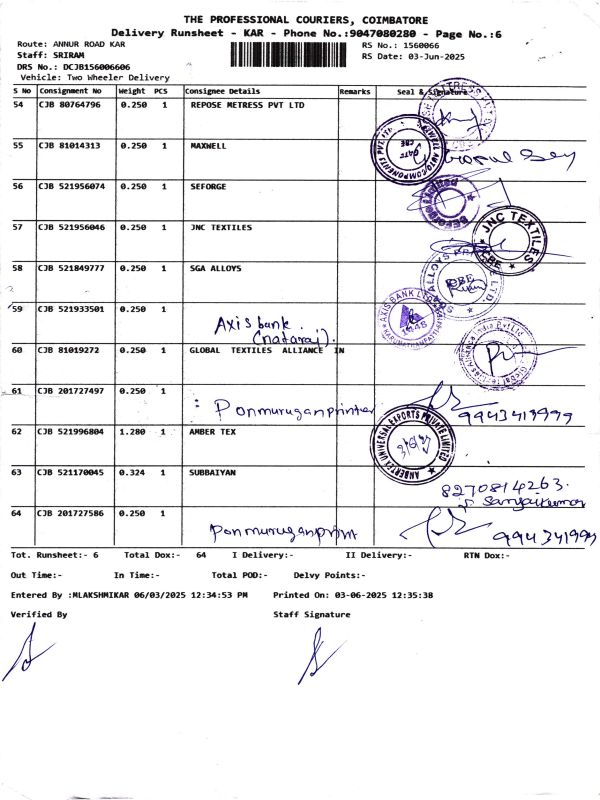 THE PROFESSIONAL COURIERS, COIMBATORE
Delivery Runsheet - KAR - Phone No.:9047080280 - Page No.:6
Route: ANNUR ROAD KAR RS No.: 1560066
Staff: SRIRAM RS Date: 03-Jun-2025
DRS No.: DCJB156006606
Vehicle: Two Wheeler Delivery
S No Consignment No Weight PCS Consignee Details Remarks Seal & Signature
54 CJB 80764796 0.250 1 REPOSE METRESS PVT LTD
55 CJB 81014313 0.250 1 MAXWELL
56 CJB 521956074 0.250 1 SEFORGE
57 CJB 521956046 0.250 1 JNC TEXTILES JNC TEXTILES CBE
58 CJB 521849777 0.250 1 SGA ALLOYS
59 CJB 521933501 0.250 1 Axis bank. (nataraj). AXIS BANK LTD 1448
60 CJB 81019272 0.250 1 GLOBAL TEXTILES ALLIANCE IN
61 CJB 201727497 0.250 1 : Ponmuruganprinter 9943413999
62 CJB 521996804 1.280 1 AMBER TEX AMBERTEX UNIVERSAL EXPORTS PRIVATE LIMITED
63 CJB 521170045 0.324 1 SUBBAIYAN 8270814263.
Sanjaikumar
64 CJB 201727586 0.250 1 Ponmuruganprint
Tot. Runsheet:- 6 Total Dox:- 64 I Delivery:- II Delivery:- RTN Dox:-
Out Time:- In Time:- Total POD:- Delvy Points:-
Entered By :MLAKSHMIKAR 06/03/2025 12:34:53 PM Printed On: 03-06-2025 12:35:38
Verified By Staff Signature